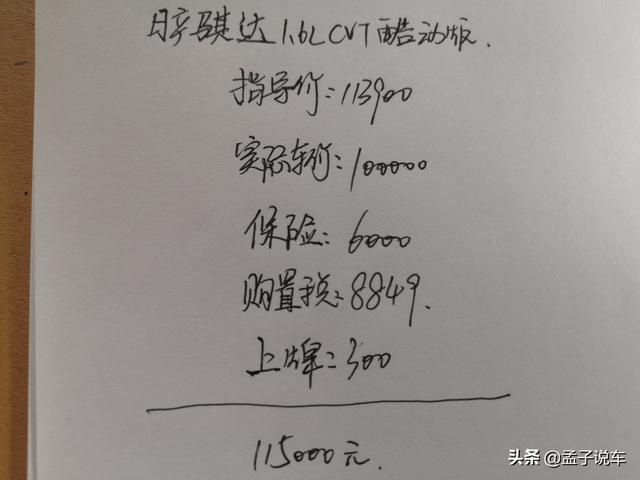 日产骐达1.6L CVT酷动版.
指导价:113900
实际车价:100000
保险:6000
购置税:8849.
上牌:300
115000元.
头条 @孟子说车